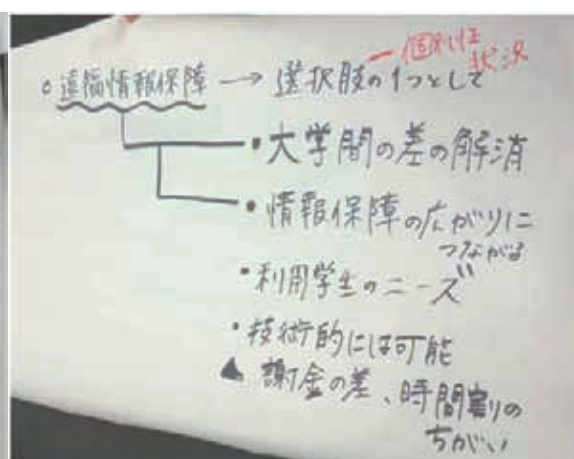 個別性
状況
○遠隔情報保障 → 選択肢の1つとして
・大学間の差の解消
・情報保障の広がりに
つながる
・利用学生のニーズ
・技術的には可能
▲ 謝金の差、時間割りの
ちがい